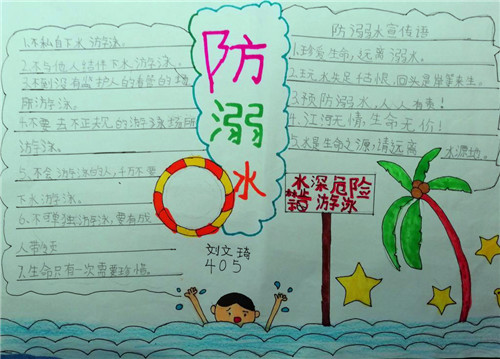 1.不私自下水游泳,
2.不与他人结伴下水游泳,
3.不到没有监护人的看管的場
所游泳。
4.不要去不正规的游泳场所
游泳。
5.不会游泳的人,千万不要
下水游泳。
6.不可单独游泳,要有成
人带着
7.生命只有一次需要珍惜
防
溺
水
刘文琦
405
防溺水宣传语
1.珍爱生命,远离溺水。
2.玩水失足千古恨,回头是岸苦来生。
3.预防溺水,人人有责!
4.江河无情,生命无价!
5.水是生命之源,请远离 水源地。
水深危险
禁 游泳